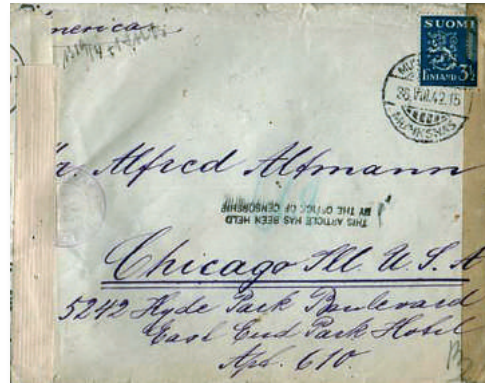 merica.
SUOMI
FINLAND 3½
MUNKSNÄS
r. Alfred Altmann
THIS ARTICLE HAS BEEN HELD
BY THE OFFICE OF CENSORSHIP
Chicago Ill. U. S. A
5242 Hyde Park Boulevard
East End Park Hotel
Apt. 610.